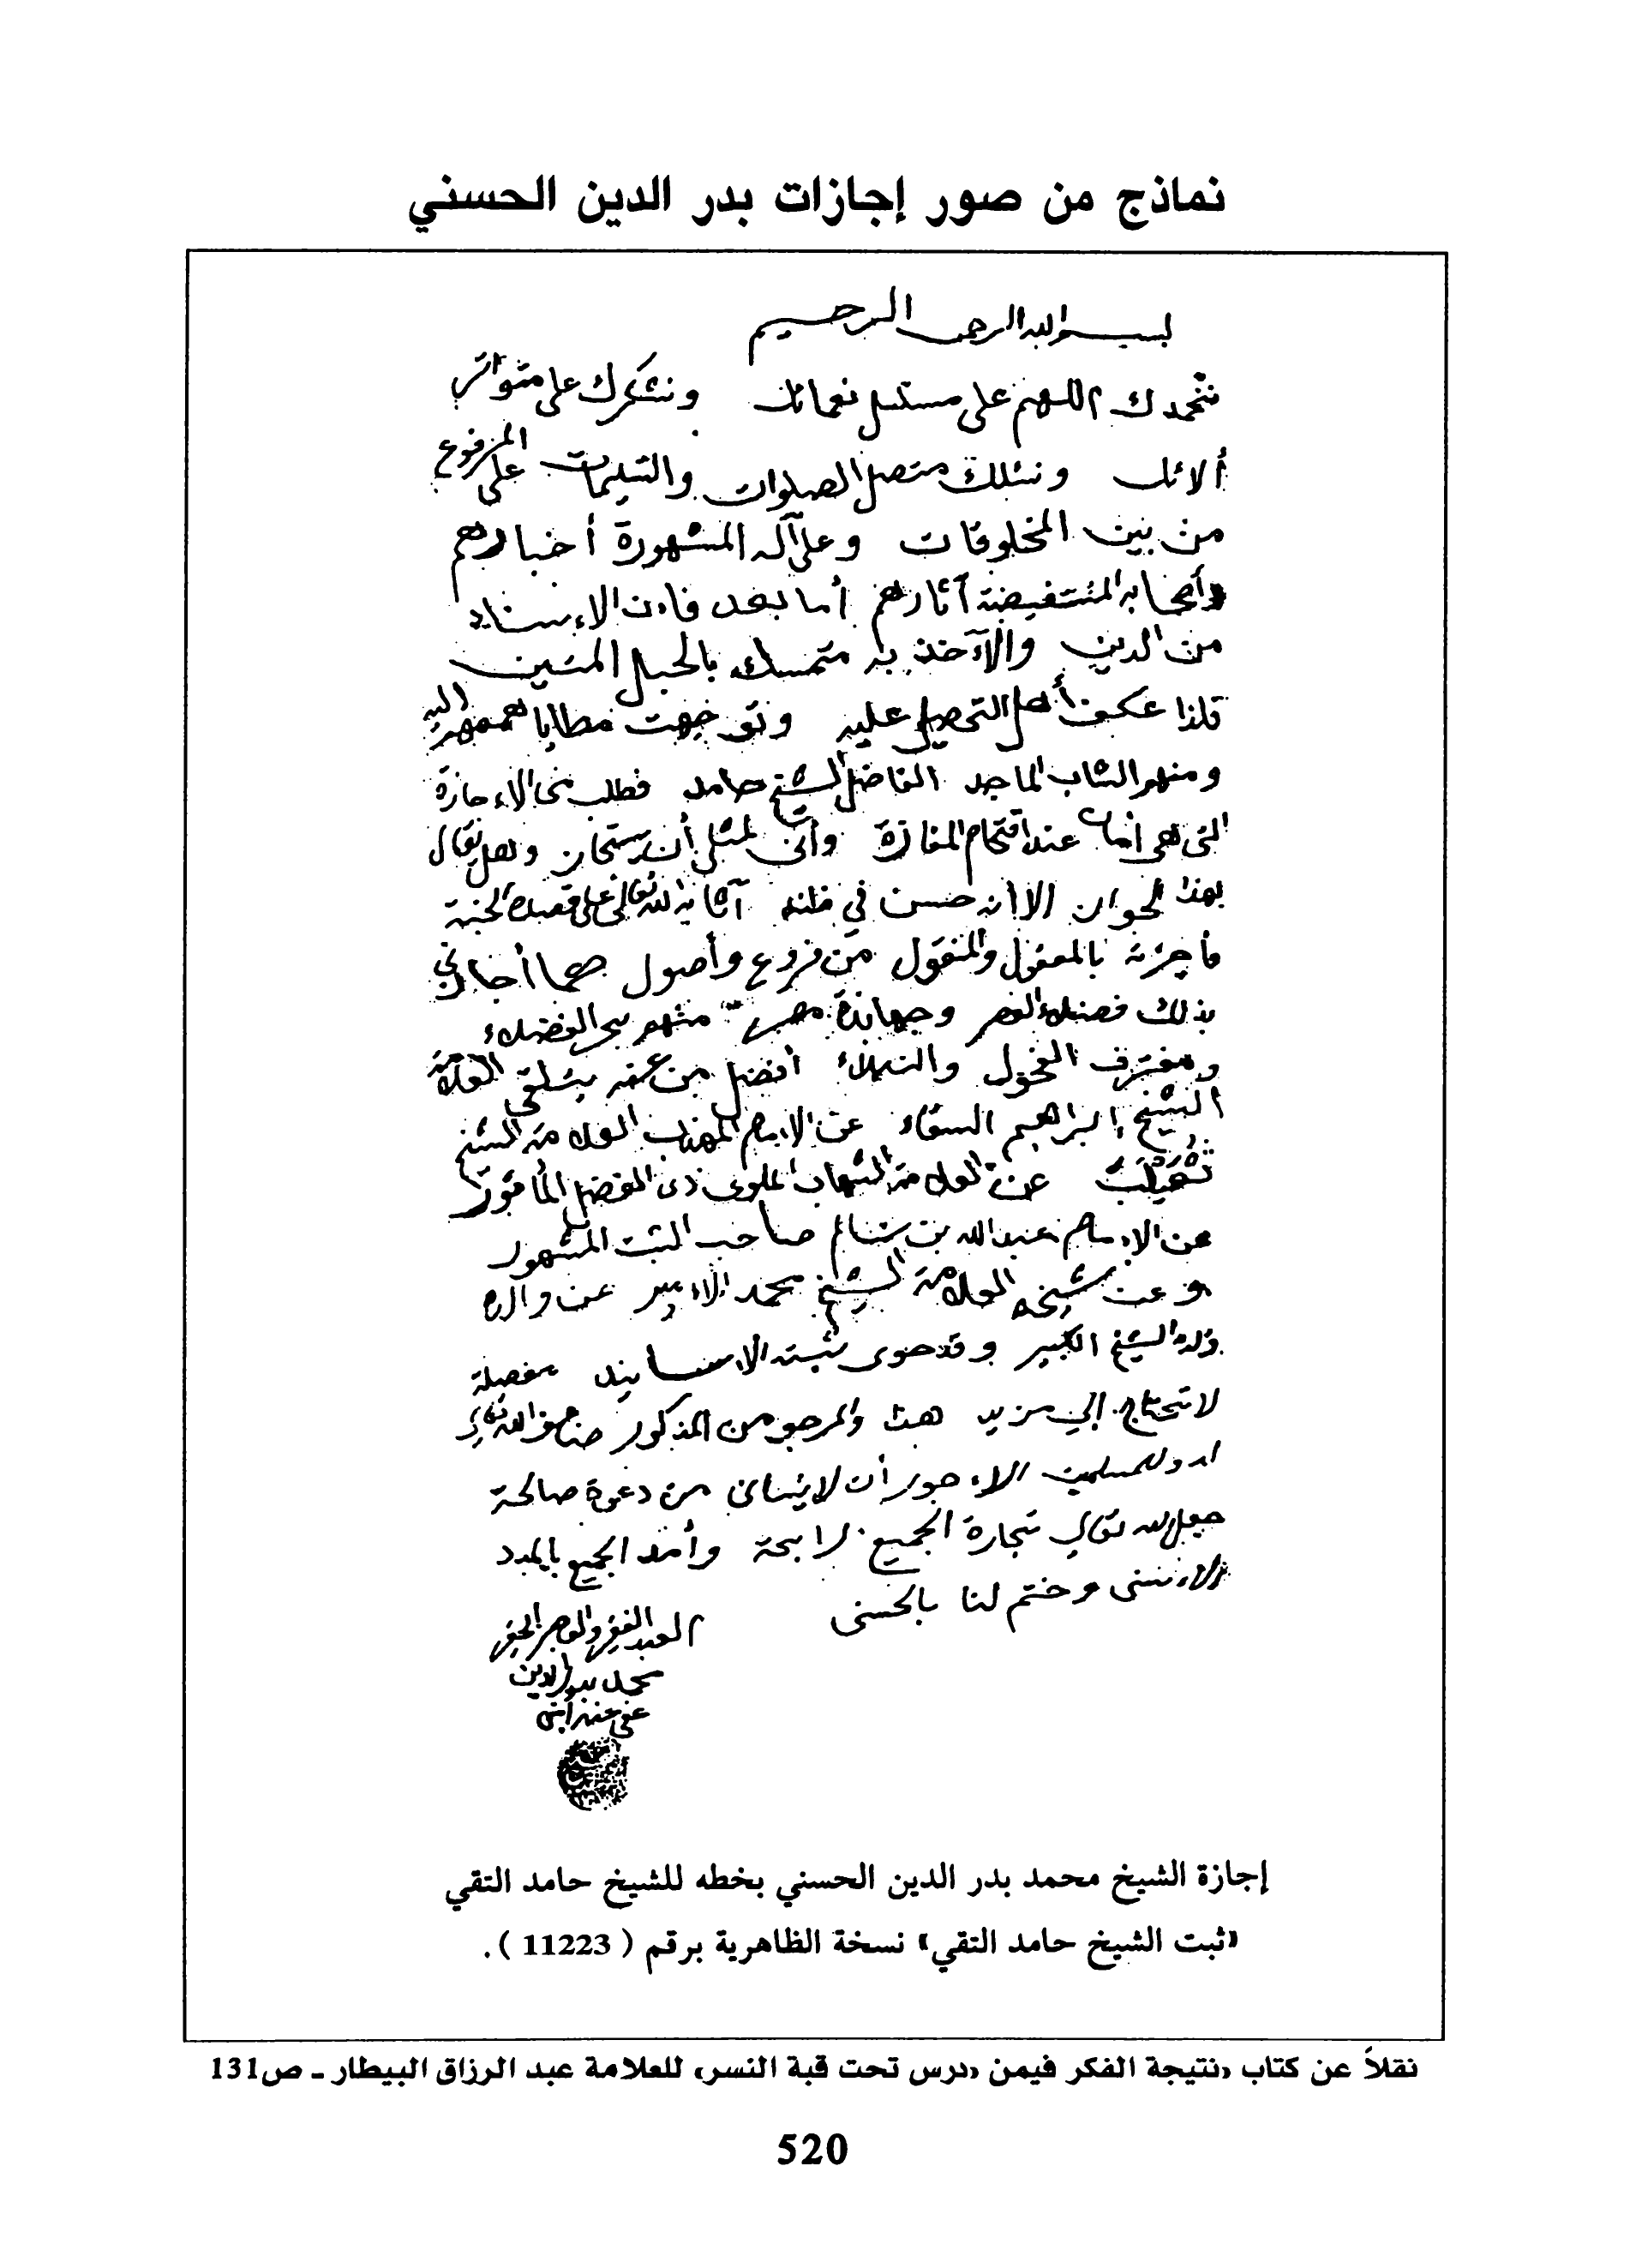 نماذج من صور إجازات بدر الدين الحسني
بسم الله الرحمن الرحيم
نحمدك اللهم على مسلسل نعمائك ونشكرك على متواتر
ألائك ونسئلك متصل الصلوات والتسليمات على المرفوع
من بين المخلوقات وعلى آله المشهورة أخبارهم
وأصحابه المستفيضة آثارهم أما بعد فان الاسناد
من الدين والآخذ به متمسك بالحبل المتين
فلذا عكف أهل التحصيل عليه وتوجهت مطايا هممهم اليه
ومنهم الشاب الماجد الفاضل الشيخ حامد فطلب مني الاجازة
التي هي أمان عند اقتحام المفازة وأنى لمثلي أن يستجاز وهل يقال
بهذا الجواز الا أنه حسن في ظنه آثابه الله تعالى على قصده الجنة
فأجزته بالمعقول والمنقول من فروع وأصول كما أجازني
بذلك فضلاء العصر وجهابذة مصر منهم بحر الفضلاء
ومغترف الفحول والنبلاء أفضل من عنه يتلقى العلامة
الشيخ إبراهيم السقاء عن الامام المهذب العلامة الشيخ
ثعيلب عن العلامة الشهاب الملوي ذي الفضل المأثور
عن الإمام عبدالله بن سالم صاحب الثبت المشهور
وعن شيخه العلامة الشيخ محمد الامير عن والده
الشيخ الكبير وقد حوى ثبته الاسانيد مفصلة
لا تحتاج الى مزيد هذا والمرجو من المذكور ضاعف الله تعالى
له وللمسلمين الاجور أن لا ينساني من دعوة صالحة
جعل الله تعالى تجارة الجميع رابحة وأمد الجميع بالمدد
الاسنى وختم لنا بالحسنى
العبد الفقير والعاجز الحقير
محمد بدر الدين
عفي عنه
إجازة الشيخ محمد بدر الدين الحسني بخطه للشيخ حامد التقي
«ثبت الشيخ حامد التقي» نسخة الظاهرية برقم ( 11223 ).
نقلاً عن كتاب «نتيجة الفكر فيمن «درس تحت قبة النسر» للعلامة عبد الرزاق البيطار ـ ص131
520